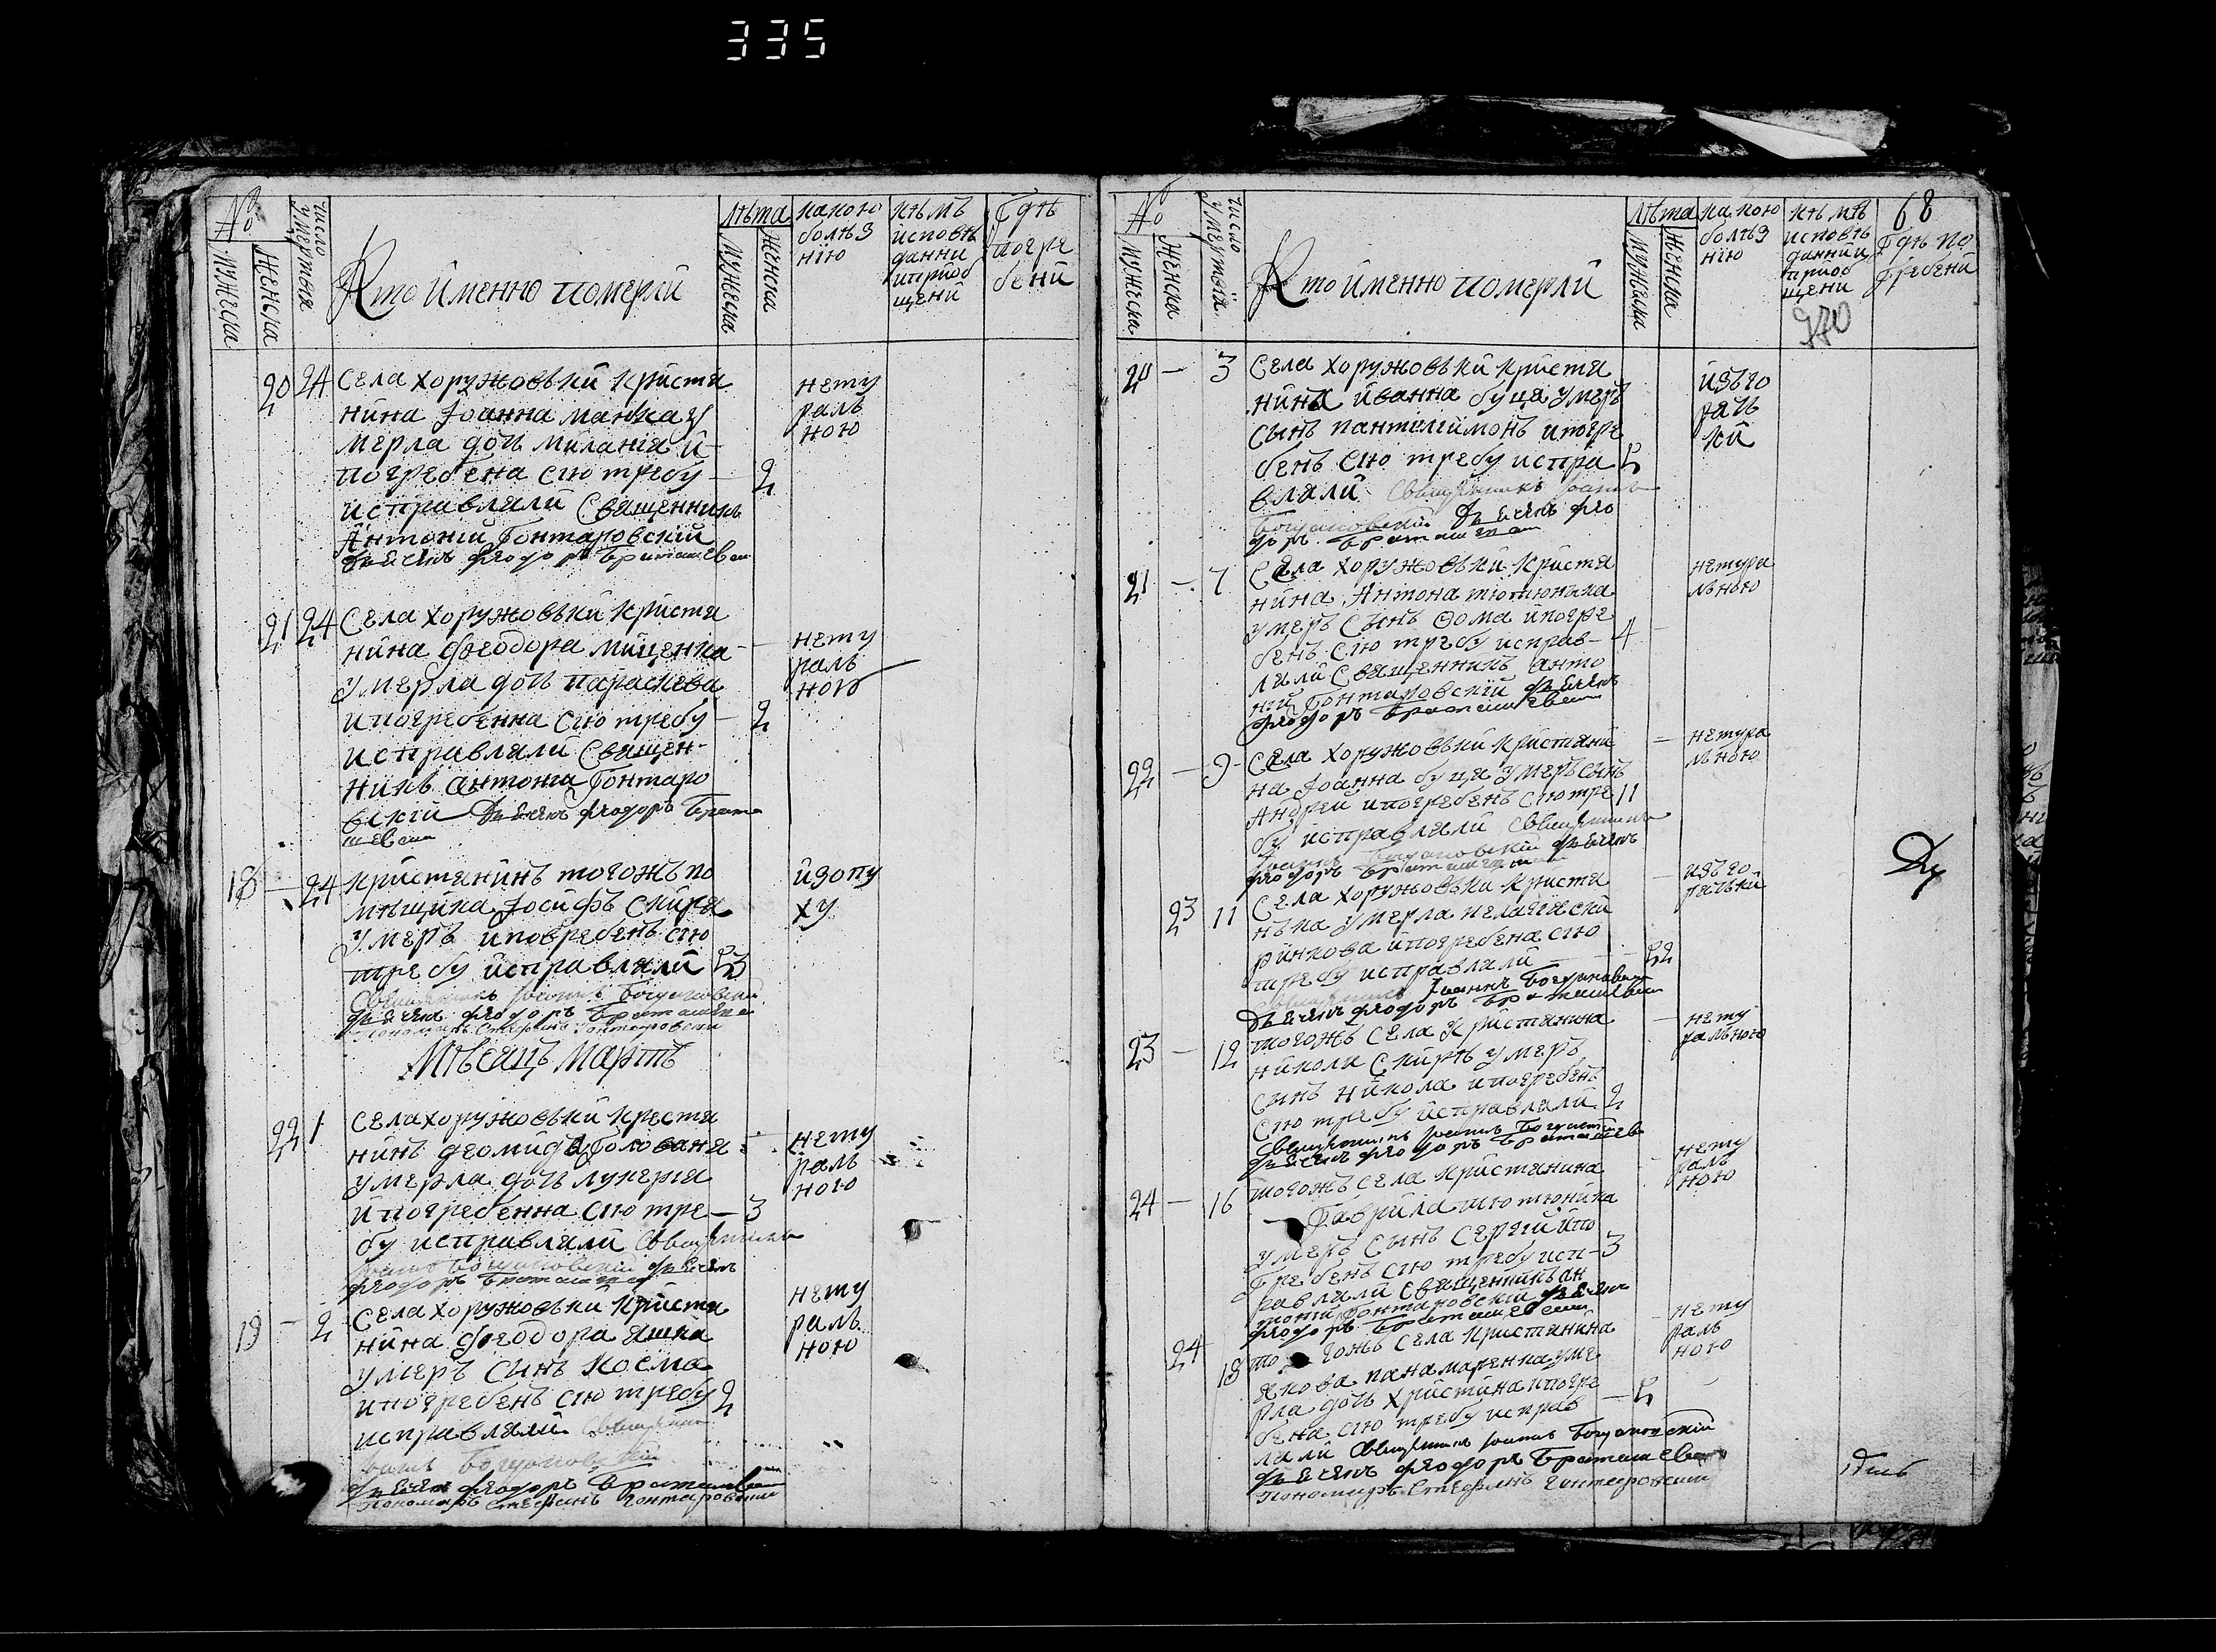 335
№
мужеска
женска
число умертвія
Кто именно померли
лѣта
мужеска
женска
какою
болѣз
нію
кѣмъ
исповѣ
данни
ипріоб
щени
Гдѣ
погре
бени
20 24 Села хоружовъки кристя
нина Іоанна манка у
мерла дочь миланія и
погребена сію требу — 2
исправляли Священникъ
Антоній Гонтаровскій
дьячекъ феодоръ Браташевъ
нету
раль
ною
21 24 Села хоружовъки кристя
нина феодора мищенка
умерла дочь параскева
ипогребенна сію требу — 2
исправляли Священ-
никъ антоній Гонтаро
вскій дьячекъ феодоръ Брата
шевъ
нету
раль
ною
18 — 24 кристянинъ тогожъ по
мѣщика Іосифъ Скиря
умеръ иповребенъ сію
требу исправляли 53
Священникъ Іоаннъ Богдановскій
дьячекъ феодоръ Браташевъ
пономарь Стефанъ Гонтаровскій
изопу
ху
Мѣсяцъ Мартъ
22 1 села хоружовъки кристя
нинъ деомида Голованя
умерла дочь лукерія
ипогребенна сію тре — 3
бу исправляли Священникъ
Іоаннъ Богдановскій дьячекъ
феодоръ Браташевъ
нету
раль
ною
19 — 2 Села хоружовъки кристя
нина феодора яшка
умеръ синъ косма
ипогребенъ сію требу 2
исправляли Священникъ
Іоаннъ Богдановскій
дьячекъ феодоръ Браташевъ
Пономарь Стефанъ Гонтаровскій
нету
раль
ною
№
мужеска
женска
число умертвія
Кто именно померли
лѣта
мужеска
женска
какою
болѣз
нію
кѣмъ
исповѣ
данни и
пріоб
щени
970
68
Гдѣ по
гребени
20 — 3 Села хоружовъки кристя
нина иванна буця умеръ
сынъ пантелиймонъ ипогре
бенъ сію требу испра 5
вляли Священникъ Іоаннъ
Богдановскій Дьячекъ фео
доръ Браташевъ
изъго
рячь
ки
21 — 7 Села хоружовъки кристя
нина Антона тютюнъника
умеръ Сынъ Ѳома ипогре
бенъ сію требу исправ- 4
ляли Священникъ анто
ній Гонтаровскій дьячекъ
феодоръ Браташевъ
нетура
льною
22 — 9 Села хоружовъки кристяни
на Іоанна буця умеръ сынъ
Андрей ипогребенъ сію тре 11
бу исправляли Священникъ
Іоаннъ Богдановскій дьячекъ
феодоръ Браташевъ
нетура
льною
23 11 Села хоружовъки кристя
нъка умерла пелагия ски
ринкова ипогребена сію
требу исправляли — 52
Священникъ Іоаннъ Богдановскій
Дьячекъ феодоръ Браташевъ
изъго
рячьки
23 — 12 тогожъ села кристянина
николи Скирѣ умеръ
сынъ никола ипогребенъ
сію требу исправляли 2
Священникъ Іоаннъ Богдановскій
дьячекъ феодоръ Браташевъ
нету
ральною
24 — 16 тогожъ села кристянина
Гаврила тютюнника
умеръ Сынъ Сергій ипо
Гребенъ сію требу исп- 3
равляли Священникъ ан
тоній Гонтаровскій дьячекъ
феодоръ Браташевъ
нету
раль
ною
24 18 тогожъ села кристянина
якова панамаренка уме
рла дочь христина ипогре
бена сію требу исправ — 5
ляли Священникъ Іоаннъ Богдановскій
дьячекъ феодоръ Браташевъ
Пономарь Стефанъ Гонтаровскій
нету
раль
ною